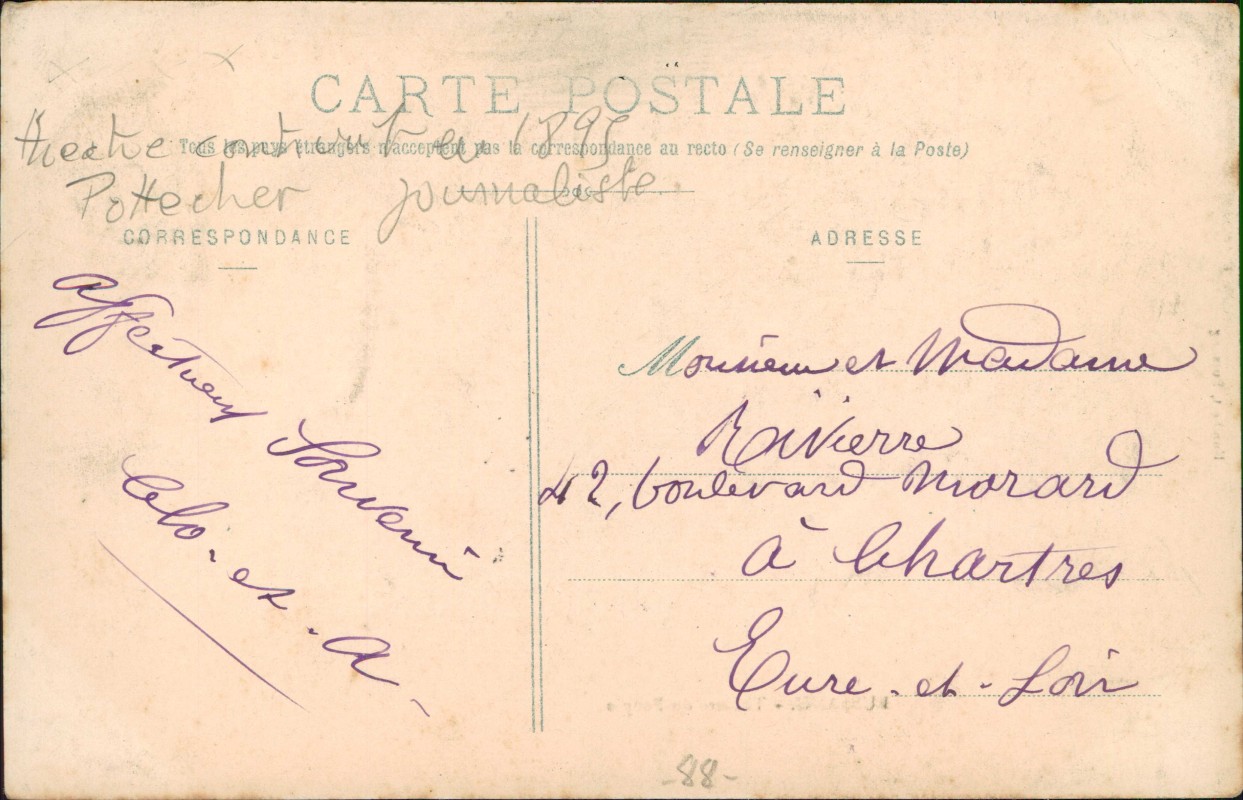 CARTE POSTALE
theatre construit en 1895
Tous les pays étrangers n'acceptent pas la correspondance au recto (Se renseigner à la Poste)
Pottecher journaliste
CORRESPONDANCE
ADRESSE
affectueux Souvenir
Clo. et. A.
Monsieur et Madame
Rivierre
42, boulevard Morard
à Chartres
Eure-et-Loir
-88-